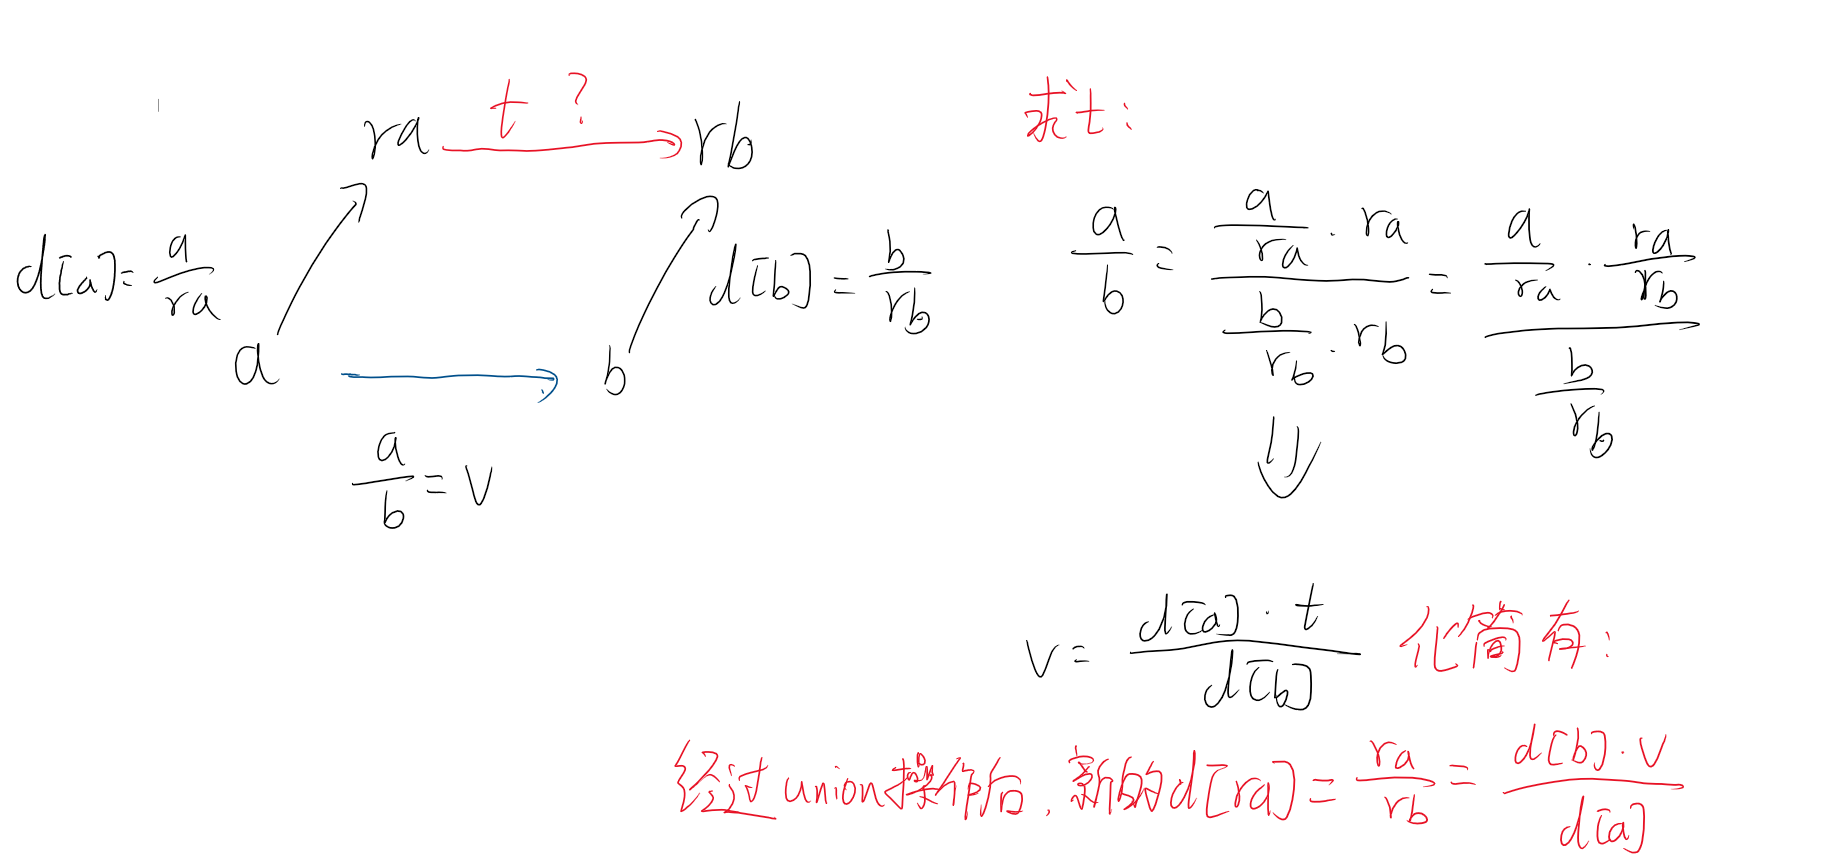 ra t ? rb
d[a]= a/ra
a
d[b] = b/rb
b
a/b = v
求t:
a/b = (a/ra · ra)/(b/rb · rb) = (a/ra · ra/rb)/(b/rb)
v= (d[a] · t)/d[b] 化简有:
经过union操作后, 新的d[ra] = ra/rb = (d[b] · v)/d[a]